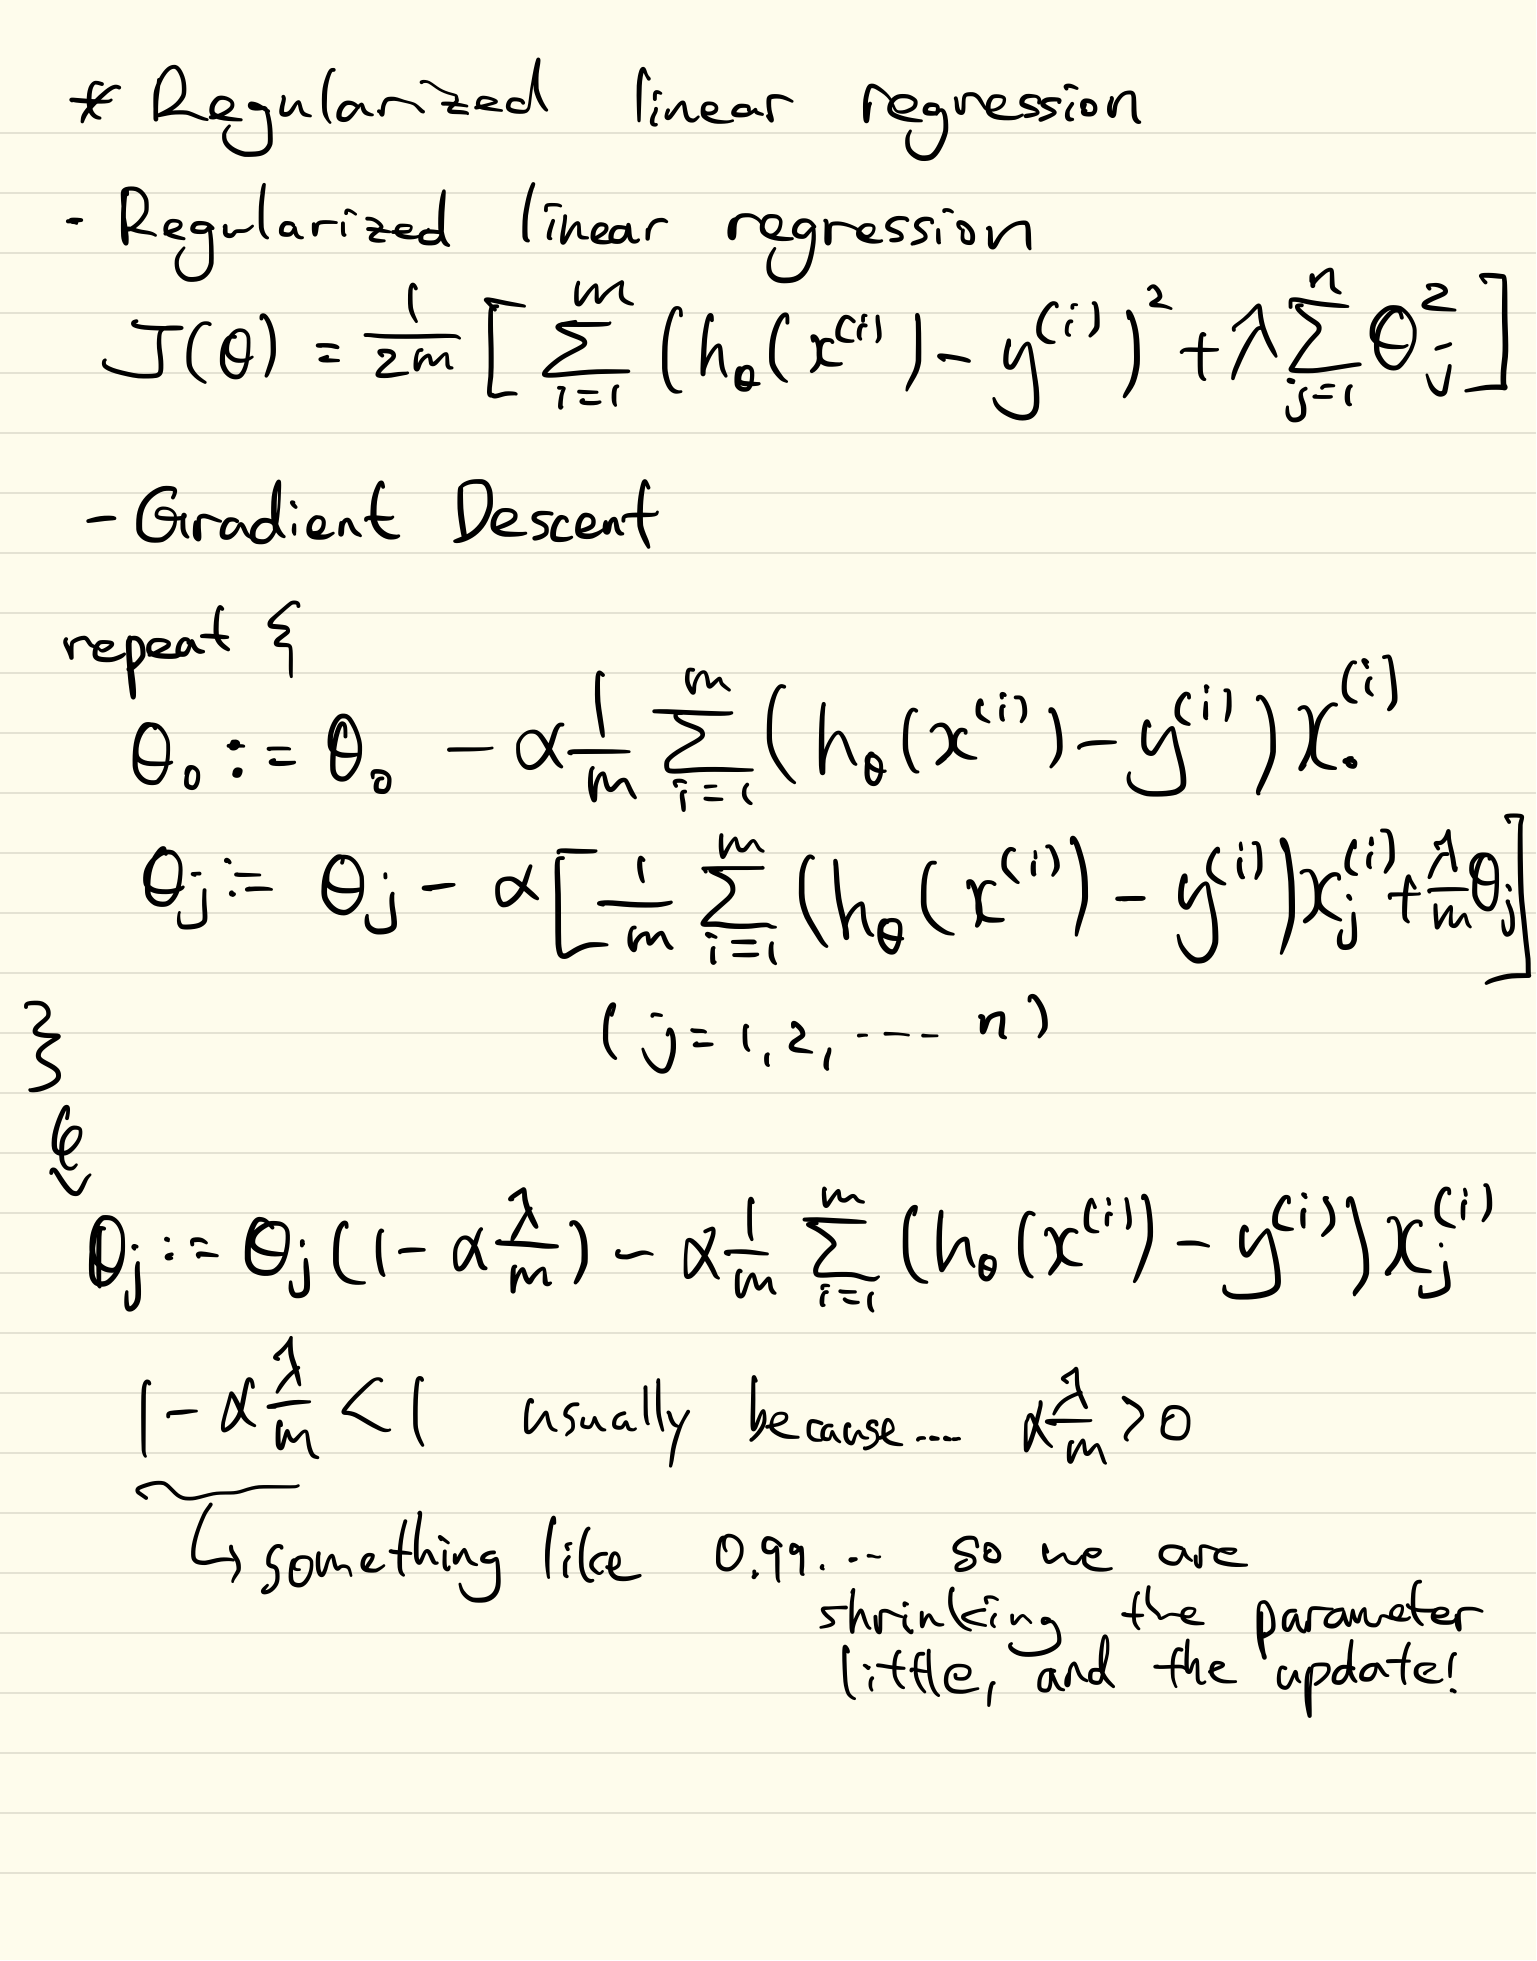 * Regularized linear regression
- Regularized linear regression
J(θ) = 1/2m [ ∑_{i=1}^{m} (h_θ(x^{(i)}) - y^{(i)})^2 + λ ∑_{j=1}^{n} θ_j^2 ]
- Gradient Descent
repeat {
θ_0 := θ_0 - α 1/m ∑_{i=1}^{m} (h_θ(x^{(i)}) - y^{(i)}) x_0^{(i)}
θ_j := θ_j - α [ 1/m ∑_{i=1}^{m} (h_θ(x^{(i)}) - y^{(i)}) x_j^{(i)} + λ/m θ_j ]
(j = 1, 2, ---- n)
}
θ_j := θ_j (1 - α λ/m) - α 1/m ∑_{i=1}^{m} (h_θ(x^{(i)}) - y^{(i)}) x_j^{(i)}
1 - α λ/m < 1 usually because.... α λ/m > 0
↳ something like 0.99.-- so we are
shrinking the parameter
little, and the update!